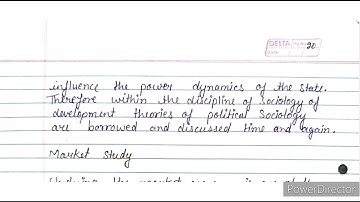 DELTA Pg No. 20
Date
influence the power dynamics of the state.
Therefore within the discipline of Sociology of
development theories of political Sociology
are borrowed and discussed time and again.
Market Study
PowerDirector